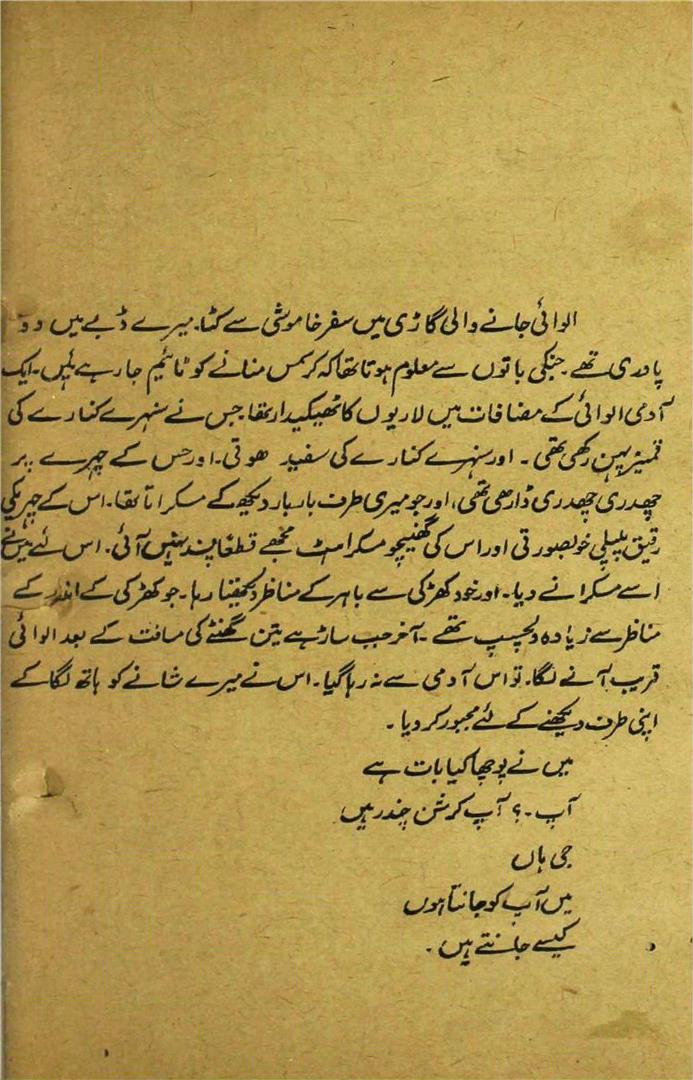 الوائی جانے والی گاڑی میں سفر خاموشی سے کٹا۔ میرے ڈبے میں دو
پادری تھے۔ جنکی باتوں سے معلوم ہوتا تھا کہ کرسمس منانے کو ٹائیم جا رہے ہیں۔ ایک
آدمی الوائی کے مضافات میں لاریوں کا ٹھیکیدار تھا۔ جس نے سنہرے کنارے کی
قمیز پہن رکھی تھی ۔ اور سنہرے کنارے کی سفید دھوتی۔ اور جس کے چہرے پر
چھدری چھدری ڈارھی تھی، اور جو میری طرف بار بار دیکھ کے مسکراتا تھا۔ اس کے چہریکی
رقیق پلپلی خوبصورتی اور اس کی گھنیچو مسکراہٹ مجھے قطعًا پسند نہیں آئی۔ اس لئے میں نے
اسے مسکرانے دیا۔ اور خود کھڑکی سے باہر کے مناظر دیکھتا رہا۔ جو کھڑکی کے اندر کے
مناظر سے زیادہ دلچسپ تھے ۔ آخر جب ساڑھے تین گھنٹے کی مسافت کے بعد الوائی
قریب آنے لگا۔ تو اس آدمی سے نہ رہا گیا۔ اس نے میرے شانے کو ہاتھ لگا کے
اپنی طرف دیکھنے کے لئے مجبور کر دیا ۔
میں نے پوچھا کیا بات ہے
آپ ۔؟ آپ کرشن چندر ہیں
جی ہاں
میں آپ کو جانتا ہوں
کیسے جانتے ہیں ۔